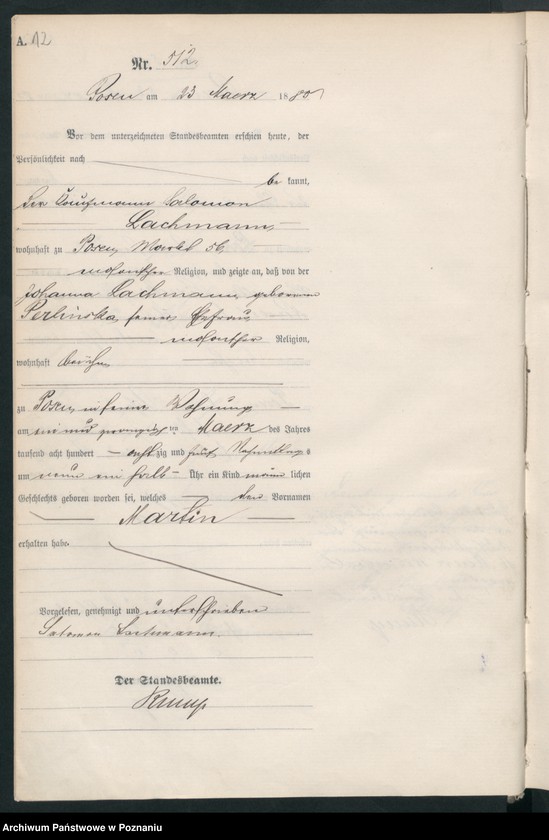 A. 12
Nr. 512
Posen am 23 Maerz 1885
Vor dem unterzeichneten Standesbeamten erschien heute, der
Persönlichkeit nach
be kannt,
der Kaufmann Salomon
Lachmann,
wohnhaft zu Posen, Markt 56
mosaischer Religion, und zeigte an, daß von der
Johanna Lachmann, geborenen
Perlinska, seiner Ehefrau,
mosaischer Religion,
wohnhaft bei ihm
zu Posen, in seiner Wohnung
am ein und zwanzigsten Maerz des Jahres
tausend acht hundert acht zig und fünf Nachmittags
um neun ein halb Uhr ein Kind männ lichen
Geschlechts geboren worden sei, welches den Vornamen
Martin
erhalten habe.
Vorgelesen, genehmigt und unterschrieben
Salomon Lachmann.
Der Standesbeamte.
Archiwum Państwowe w Poznaniu